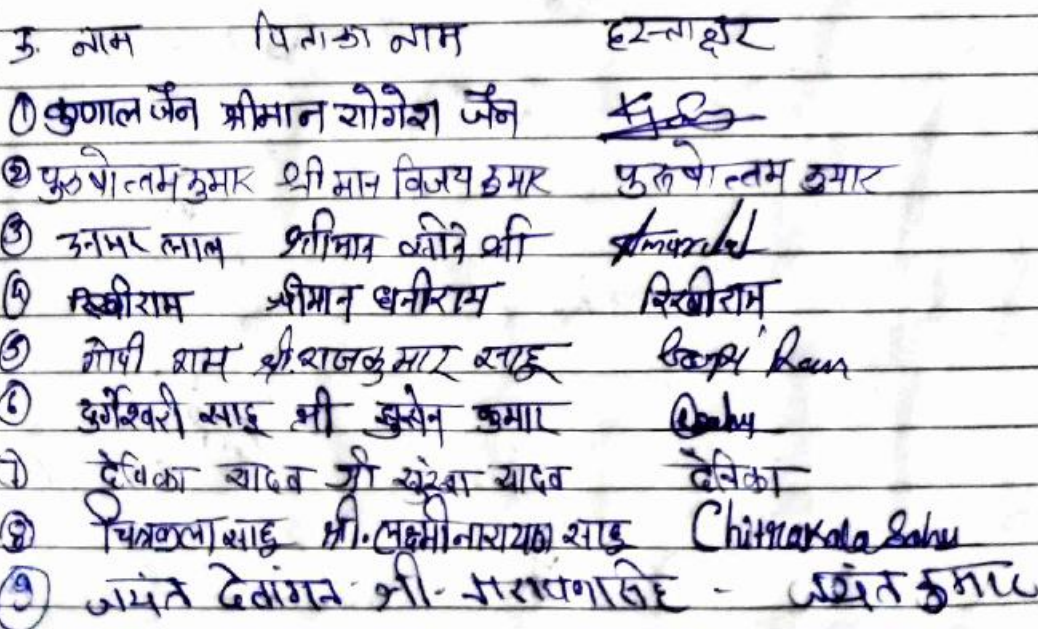 क्र. नाम पिता का नाम हस्ताक्षर
① कुणाल जैन श्रीमान योगेश जैन
② पुरुषोत्तम कुमार श्री मान विजय कुमार पुरुषोत्तम कुमार
③ अमर लाल श्रीमान Amarlal
④ रिखीराम श्रीमान धनीराम रिखीराम
⑤ गोपी राम श्री. राजकुमार साहू Gopi Ram
⑥ दुर्गेश्वरी साहू श्री कुमार
⑦ देविका यादव श्री यादव देविका
⑧ चित्रकला साहू श्री. लक्ष्मीनारायण साहू Chitrakala Sahu
⑨ जयंत देवांगन श्री - जयंत कुमार